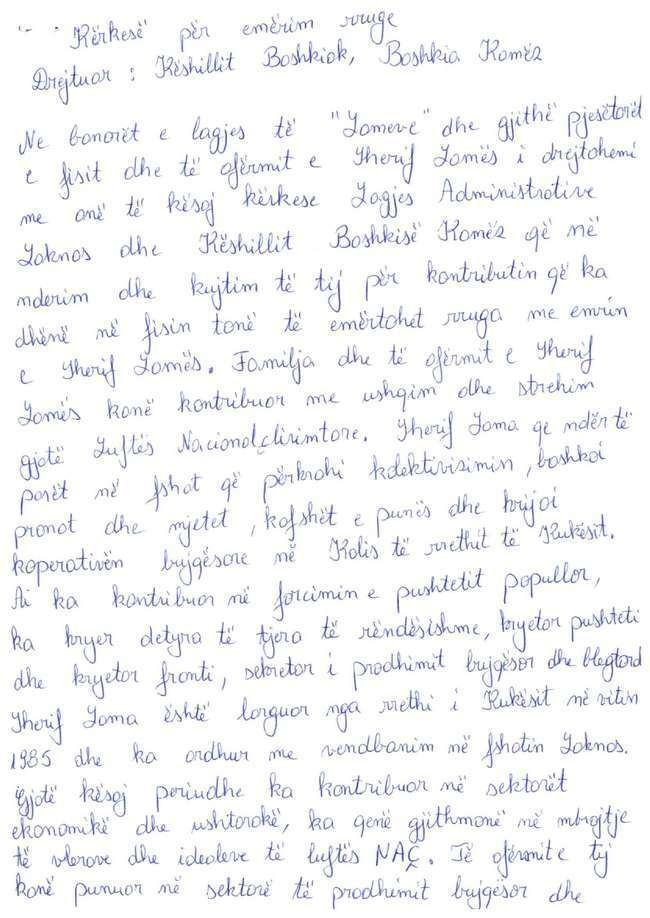 Kërkesë për emërim rruge
Drejtuar : Këshillit Boshkiak, Boshkia Kamëz
Ne banorët e lagjes të "Lameve" dhe gjithë pjesëtarët
e fisit dhe të afërmit e Sherif Lamës i drejtohemi
me anë të kësaj kërkese Lagjes Administrative
Laknas dhe Këshillit Boshkisë Kamëz që në
nderim dhe kujtim të tij për kontributin që ka
dhënë në fisin tonë të emërtohet rruga me emrin
e Sherif Lamës. Familja dhe të afërmit e Sherif
Lamës kanë kontribuar me ushqim dhe strehim
gjatë Luftës Nacionalçlirimtare. Sherif Lama qe ndër të
parët në fshat që përkrahi kolektivisimin, bashkoi
pronat dhe mjetet, kafshët e punës dhe krijoi
koperativën bujqësore në Kolis të rrethit të Kukësit.
Ai ka kontribuar në forcimin e pushtetit popullor,
ka kryer detyra të tjera të rëndësishme, kryetar pushteti
dhe kryetar fronti, sekretar i prodhimit bujqësor dhe blegtoral
Sherif Lama është larguar nga rrethi i Kukësit në vitin
1985 dhe ka ardhur me vendbanim në fshatin Laknas.
Gjatë kësaj periudhe ka kontribuar në sektorët
ekonomikë dhe ushtarakë, ka qenë gjithmonë në mbrojtje
të vlerave dhe idealeve të luftës NAÇ. Të afërmit e tij
kanë punuar në sektorë të prodhimit bujqësor dhe